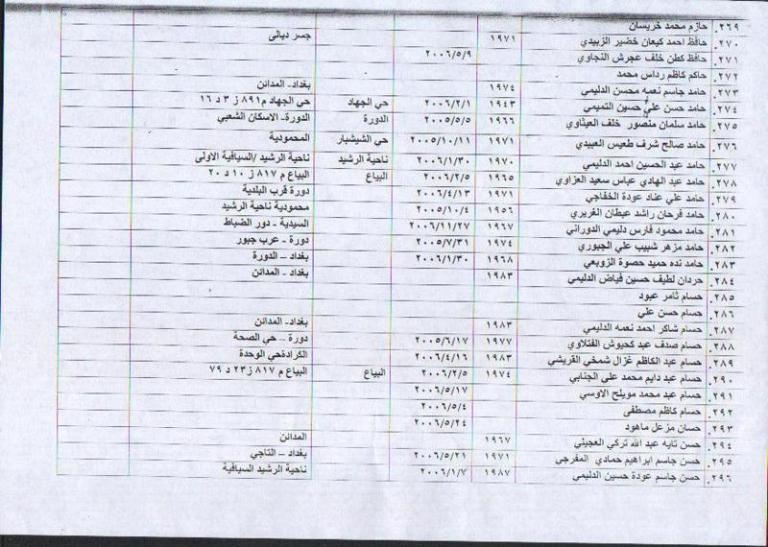 ٢٦٩. حازم محمد خريسان
٢٧٠. حافظ احمد كيعان خضير الزبيدي ١٩٧١ جسر ديالى
٢٧١. حافظ كطن خلف عجرش النجاوي ٢٠٠٦/٥/٩
٢٧٢. حاكم كاظم رداس محمد
٢٧٣. حامد جاسم نعمه محسن الدليمي ١٩٧٤ بغداد- المدائن
٢٧٤. حامد حسن علي حسين التميمي ١٩٤٣ ٢٠٠٦/٢/١ حي الجهاد حي الجهاد م٨٩١ ز ٣ د ١٦
٢٧٥. حامد سلمان منصور خلف العيثاوي ١٩٦٦ ٢٠٠٥/٥/٥ الدورة الدورة- الاسكان الشعبي
٢٧٦. حامد صالح شرف طعيس العبيدي ١٩٧١ ٢٠٠٥/١٠/١١ حي الشيشبار المحمودية
٢٧٧. حامد عبد الحسين احمد الدليمي ١٩٧٠ ٢٠٠٦/١/٣٠ ناحية الرشيد ناحية الرشيد /السيافية الاولى
٢٧٨. حامد عبد الهادي عباس سعيد العزاوي ١٩٦٥ ٢٠٠٦/٢/٥ البياع البياع م ٨١٧ ز ١٠ د ٢٠
٢٧٩. حامد علي عناد عودة الخفاجي ١٩٧١ ٢٠٠٦/٤/١٣ دورة قرب البلدية
٢٨٠. حامد فرحان راشد عيطان الغريري ١٩٥٦ ٢٠٠٥/١٠/٤ محمودية ناحية الرشيد
٢٨١. حامد محمود فارس دليمي الدوراني ١٩٦٧ ٢٠٠٦/١١/٢٧ السيدية - دور الضباط
٢٨٢. حامد مزهر شبيب علي الجبوري ١٩٧٤ ٢٠٠٥/٧/٣١ دورة - عرب جبور
٢٨٣. حامد نده حميد حصوة الزوبعي ١٩٦٨ ٢٠٠٦/١/٣٠ بغداد – الدورة
٢٨٤. حردان لطيف حسين فياض الدليمي ١٩٨٣ بغداد - المدائن
٢٨٥. حسام ثامر عبود
٢٨٦. حسام حسن علي
٢٨٧. حسام شاكر احمد نعمه الدليمي ١٩٨٣ بغداد- المدائن
٢٨٨. حسام صدف عبد كحيوش الفتلاوي ١٩٧٧ ٢٠٠٥/٦/١٧ دورة – حي الصحة
٢٨٩. حسام عبد الكاظم غزال شمخي القريشي ١٩٨٣ ٢٠٠٦/٤/١٦ الكرادةحي الوحدة
٢٩٠. حسام عبد دايم محمد علي الجنابي ١٩٧٤ ٢٠٠٦/٢/٥ البياع البياع م ٨١٧ ز٢٣ د ٧٩
٢٩١. حسام عبد محمد مويلح الاوسي ٢٠٠٦/٥/١٧
٢٩٢. حسام كاظم مصطفى ٢٠٠٦/٥/٤
٢٩٣. حسان مزعل ماهود ٢٠٠٦/٥/٢٤
٢٩٤. حسن تايه عبد الله تركي العجيلي ١٩٦٧ المدائن
٢٩٥. حسن جاسم ابراهيم حمادي المفرجي ١٩٧١ ٢٠٠٦/٥/٢١ بغداد – التاجي
٢٩٦. حسن جاسم عودة حسين الدليمي ١٩٨٧ ٢٠٠٦/١/٧ ناحية الرشيد السيافية